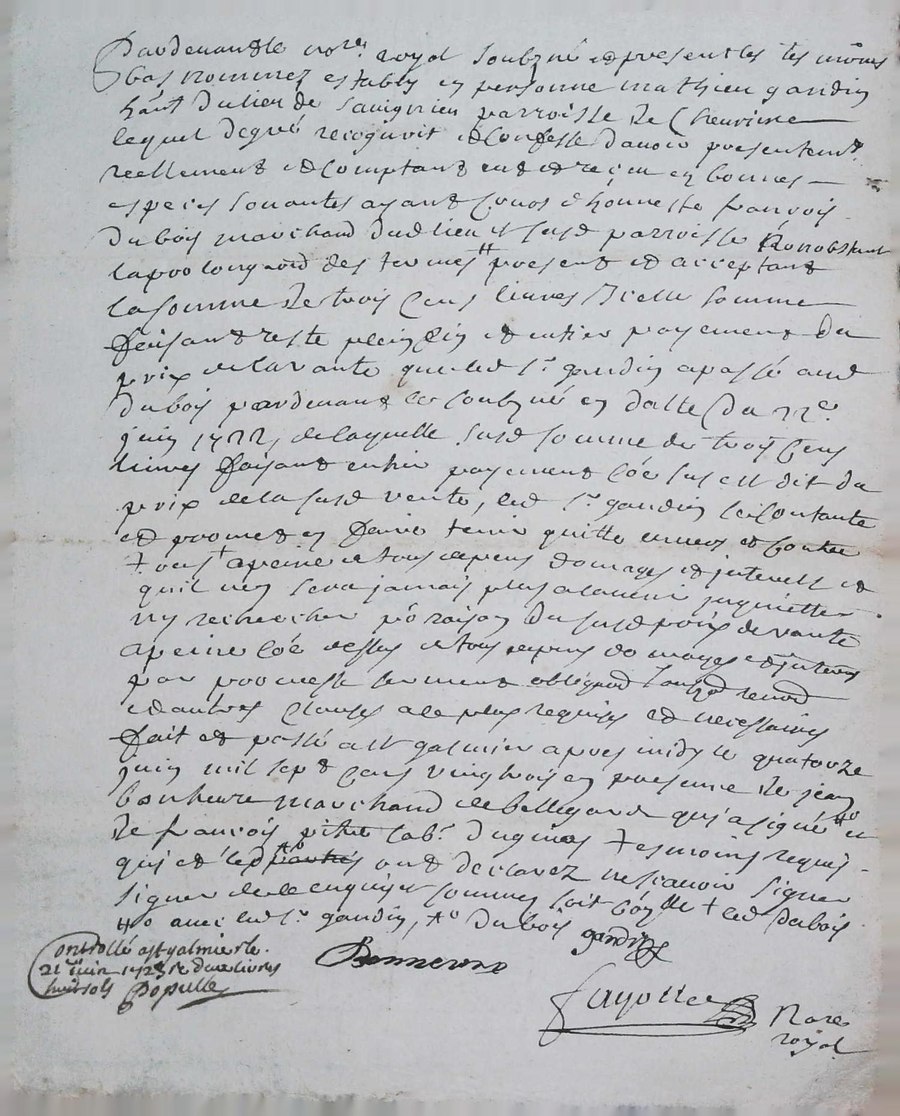 Pardevant le no.re royal soubzné et present les tesmoins
bas nommez estably en personne mathieu gaudin
hant du lieu de savignieu parroisse de Chevriere
lequel de gré recognoit et confesse d'avoir presentem.t
reellement et comptant eu et reçeu en bonnes
especes sonantes ayant cours d'honneste francois
dubois marchand dud lieu et susd parroisse
present et acceptant
nonobstant
la prolonga.ond des termes
la somme de trois cens livres Icelle somme
faisant reste plein fin et entier payement du
prix de la vante que led s.r gaudin a passé aud
dubois pardevant le soubzné en datte du 22e
juin 1722, de laquelle susd somme de trois cens
livres faisant entier payement co.e sus est dit du
prix de la susd vente, led s.r gaudin se contante
et promet en faire tenir quitte envers et contre
tous a peine de tous depens domages et interets et
qu'il n'en sera jamais plus a l'avenir inquietter
ny rechercher p.r raison du susd prix de vante
a peine co.e dessus de tous depens domages et interets
par promesse serment obligaod
et autres clauses a ce plus requises et necessaires
fait et passé a st galmier apres midy le quatorze
juin mil sept cens vingt trois en presence de jean
bonheure marchand de bellegarde qui a signé et
de francois lab.r tesmoins requis
qui et led ont declarez ne scavoir signer
signer de ce enquis et sommes soit led dubois
avec led s.r gaudin, dubois gaudin
Controllé a st galmier le
21 juin 1723 R deux livres
huit sols Populle
Bonneure
fayolle
No.re
royal